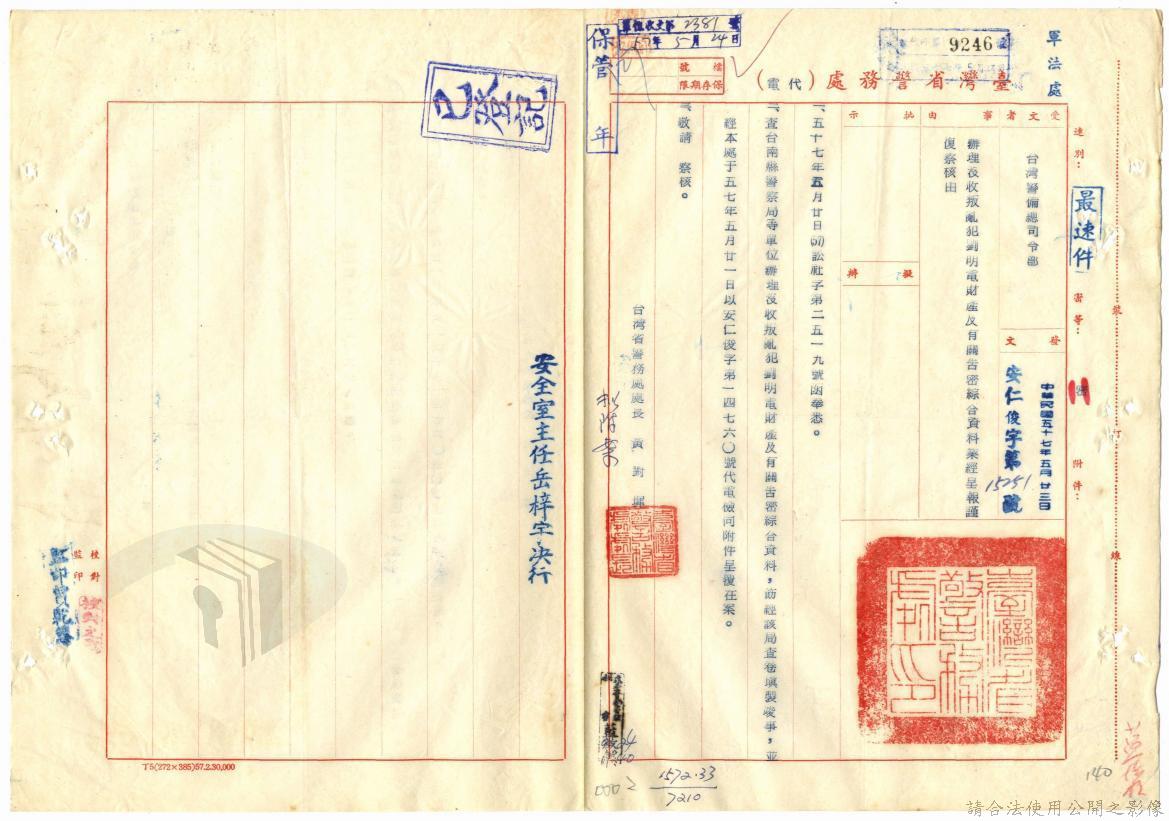 軍法處
9246
軍法收文第2381號
57年5月24日
檔號
保存期限
保管 年
臺灣省警務處(代電)
速別：
最速件
密等：
密
附件：
裝
訂
線
受文者
台灣警備總司令部
發文
中華民國五十七年五月廿三日
安仁俊字第15251號
事由
辦理沒收叛亂犯劉明電財產及有關告密綜合資料業經呈報謹
復察核由
批示
擬辦
一、五十七年五月廿日(57)訟社子第二五一九號函奉悉。
二、查台南縣警察局等單位辦理沒收叛亂犯劉明電財產及有關告密綜合資料，前經該局查卷填製竣事，並
經本處于五七年五月廿一日以安仁俊字第一四七六〇號代電檢同附件呈復在案。
三、敬請 察核。
台灣省警務處處長 黃對墀
臺灣省警務處印
已登記
安全室主任岳梓宇決行
校對
監印
1572.33
7210
0002
140
丁5(272×385)57.2.30,000
請合法使用公開之影像